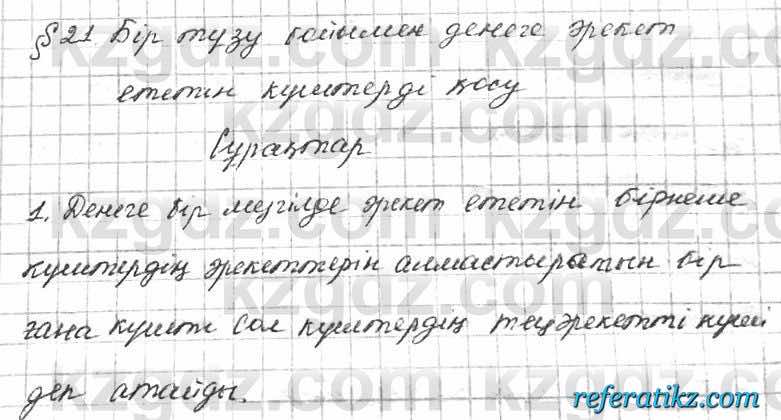 § 21 Бір түзу бойымен денеге әрекет
ететін күштерді қосу
Сұрақтар
1. Денеге бір мезгілде әрекет ететін бірнеше
күштердің әрекеттерін алмастыратын бір
ғана күшті сол күштердің теңәрекетті күші
деп атайды.
kzgdz.com
referatikz.com